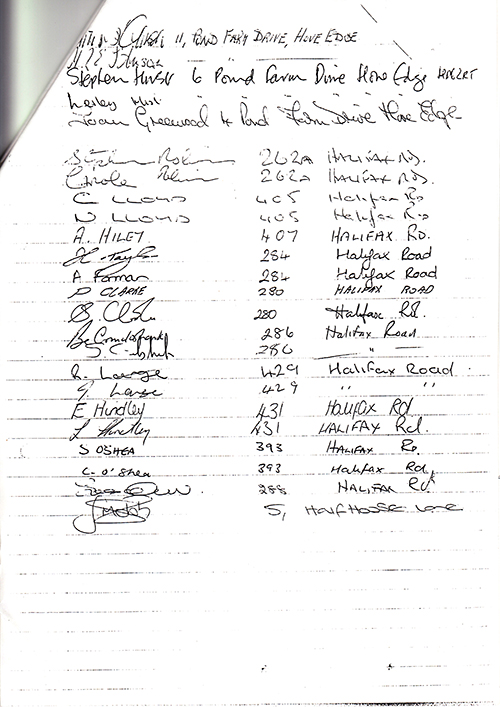 11, POND FARM DRIVE, HOVE EDGE
Stephen Hirst 6 Pond Farm Drive Hove Edge
Lesley Hirst " " " " "
Joan Greenwood 4 Pond Farm Drive Hove Edge
Stephen 262A HALIFAX RD.
Carole 262A HALIFAX RD.
C LLOYD 405 Halifax Rd
N LLOYD 405 Halifax Rd
A. HILEY 407 HALIFAX RD.
Taylor 284 Halifax Road
A Forman 284 Halifax Road
P CLARKE 280 HALIFAX ROAD
280 Halifax Rd.
286 Halifax Road
286 "
429 Halifax Road
429 " "
E Hindley 431 Halifax Rd
L Hindley 431 HALIFAX Rd.
S OSHEA 393 HALIFAX RD
C. O'Shea 393 Halifax Rd,
288 HALIFAX Rd
5, Half House Lane